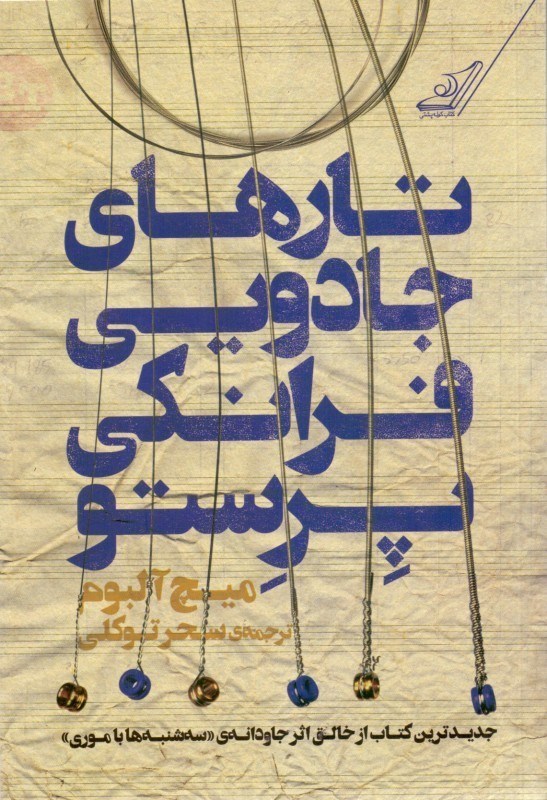 کتاب کوله‌پشتی
تارهای
جادویی
فرانکی
پِرِستو
میچ آلبوم
ترجمه‌ی سحر توکلی
جدیدترین کتاب از خالق اثر جاودانه‌ی «سه‌شنبه‌ها با موری»